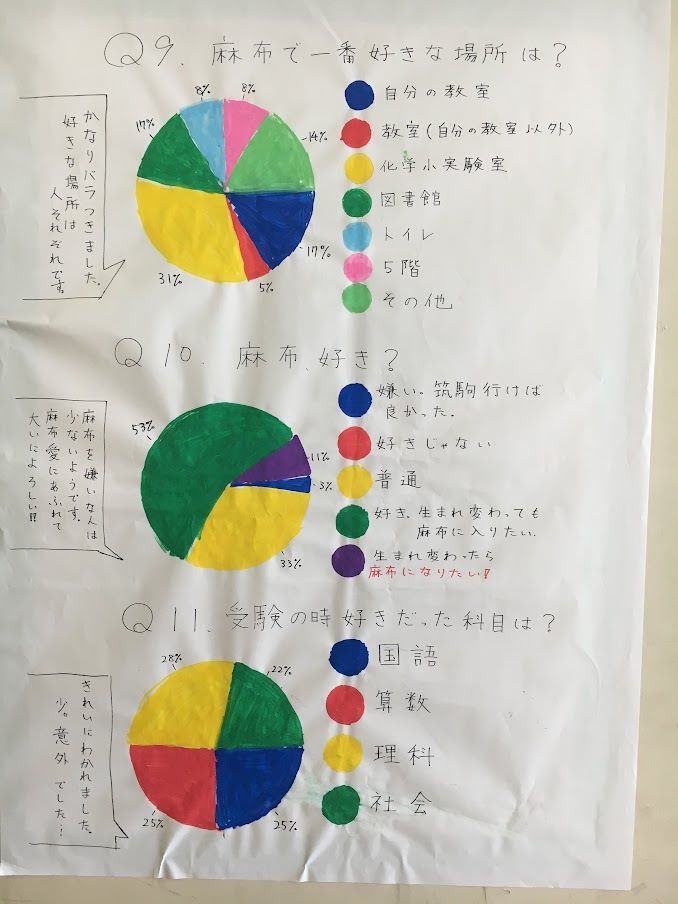 Q9. 麻布で一番好きな場所は？
かなりバラつきました。
好きな場所は
人それぞれです。
8%
8%
14%
17%
5%
31%
17%
自分の教室
教室(自分の教室以外)
化学小実験室
図書館
トイレ
5階
その他
Q10. 麻布、好き？
麻布を嫌いな人は
少ないようです。
麻布愛にあふれて
大いによろしい!!
53%
11%
3%
33%
嫌い。筑駒行けば
良かった。
好きじゃない
普通
好き、生まれ変わっても
麻布に入りたい。
生まれ変わったら
麻布になりたい!!
Q11. 受験の時好きだった科目は？
きれいにわかれました。
少。意外でした…
28%
22%
25%
25%
国語
算数
理科
社会